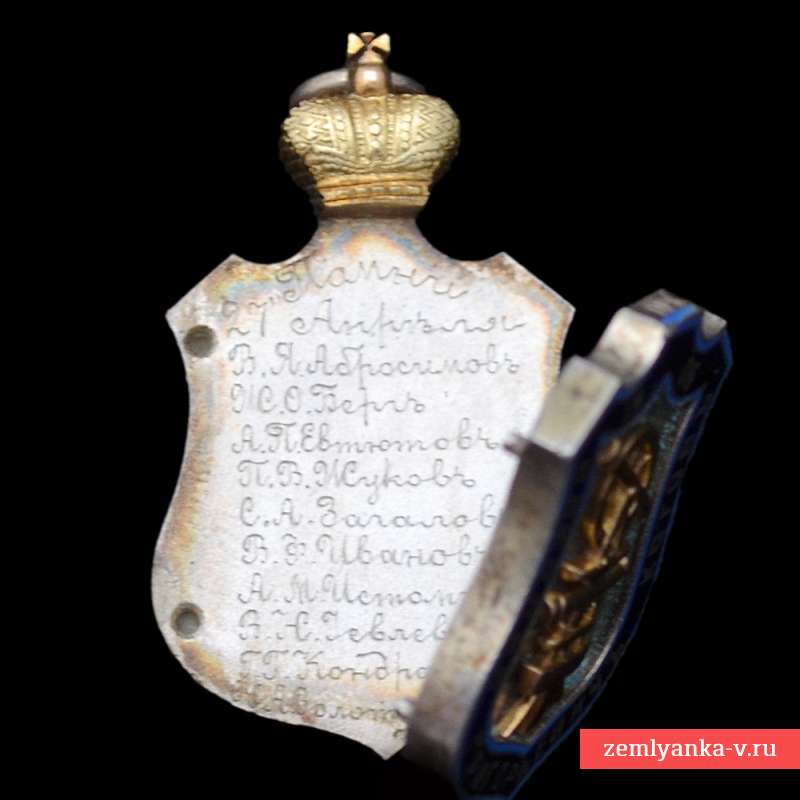 Памяти
27 Апрѣля
В.Я.Абросимовъ
Ж.О.Бергъ
А.П.Евтютовъ
П.В.Жуковъ
С.А.Загалов
В.Ф.Ивановъ
А.М.Истом
В.Н.Іевлев
Г.Г.Кондра
zemlyanka-v.ru